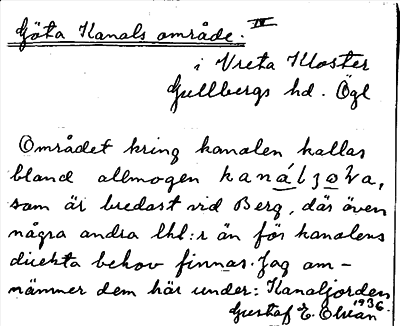 Göta Kanals område. IV
i Vreta Kloster
Gullbergs hd. Ögl
Området kring kanalen kallas
bland allmogen
som är bredast vid Berg, där även
några andra lkl:r än för kanalens
direkta behov finnas. Jag om-
nämner dem här under: Kanaljorden
Gustaf E. 1936